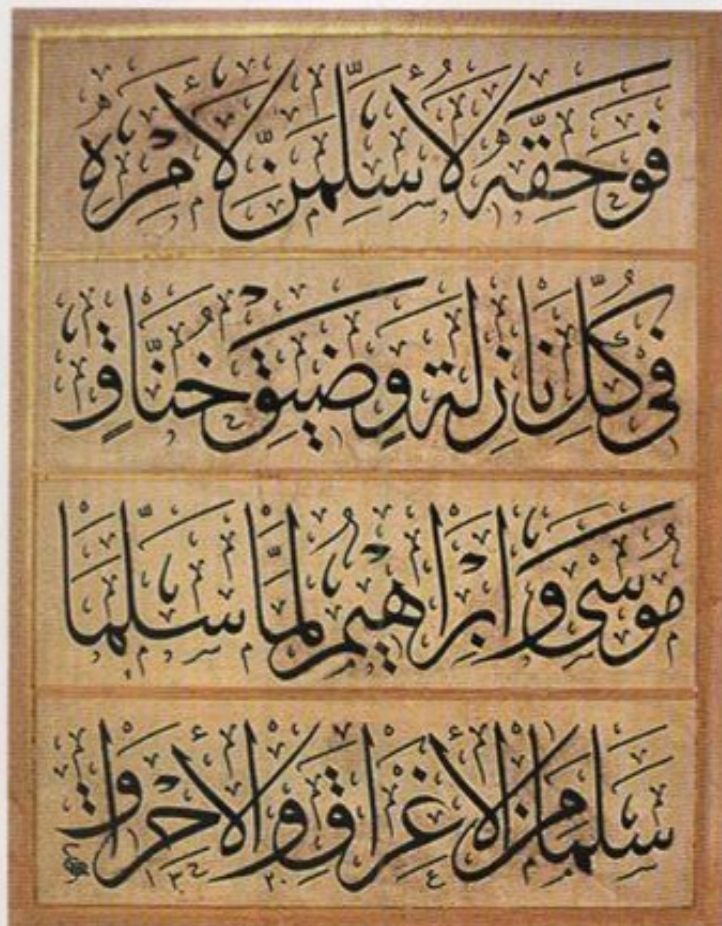 فوحقه لأسلمن لأمره
في كل نازلة وضيق خناق
موسى وابراهيم لما سلما
سلما من الإغراق والإحراق